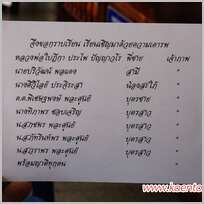 จึงขอกราบเรียน เรียนเชิญมาด้วยความเคารพ
หลวงพ่อใบฎีกา ประไพ ปัญญาวโร พี่ชาย เจ้าภาพ
นายปรีวัฒน์ พลแดง สามี "
นางศิริโสภี ประสิระสา น้องสะใภ้ "
บุตรชาย "
นางทิภาพร ชอบเจริญ บุตรสาว "
น.ส.ภชพร พละศูนย์ บุตรสาว "
น.ส.ภัทรินทร์ พละศูนย์ บุตรสาว "
น.ส.ภราพร พละศูนย์ บุตรสาว "
พร้อมญาติทุกคน "
www.kaento